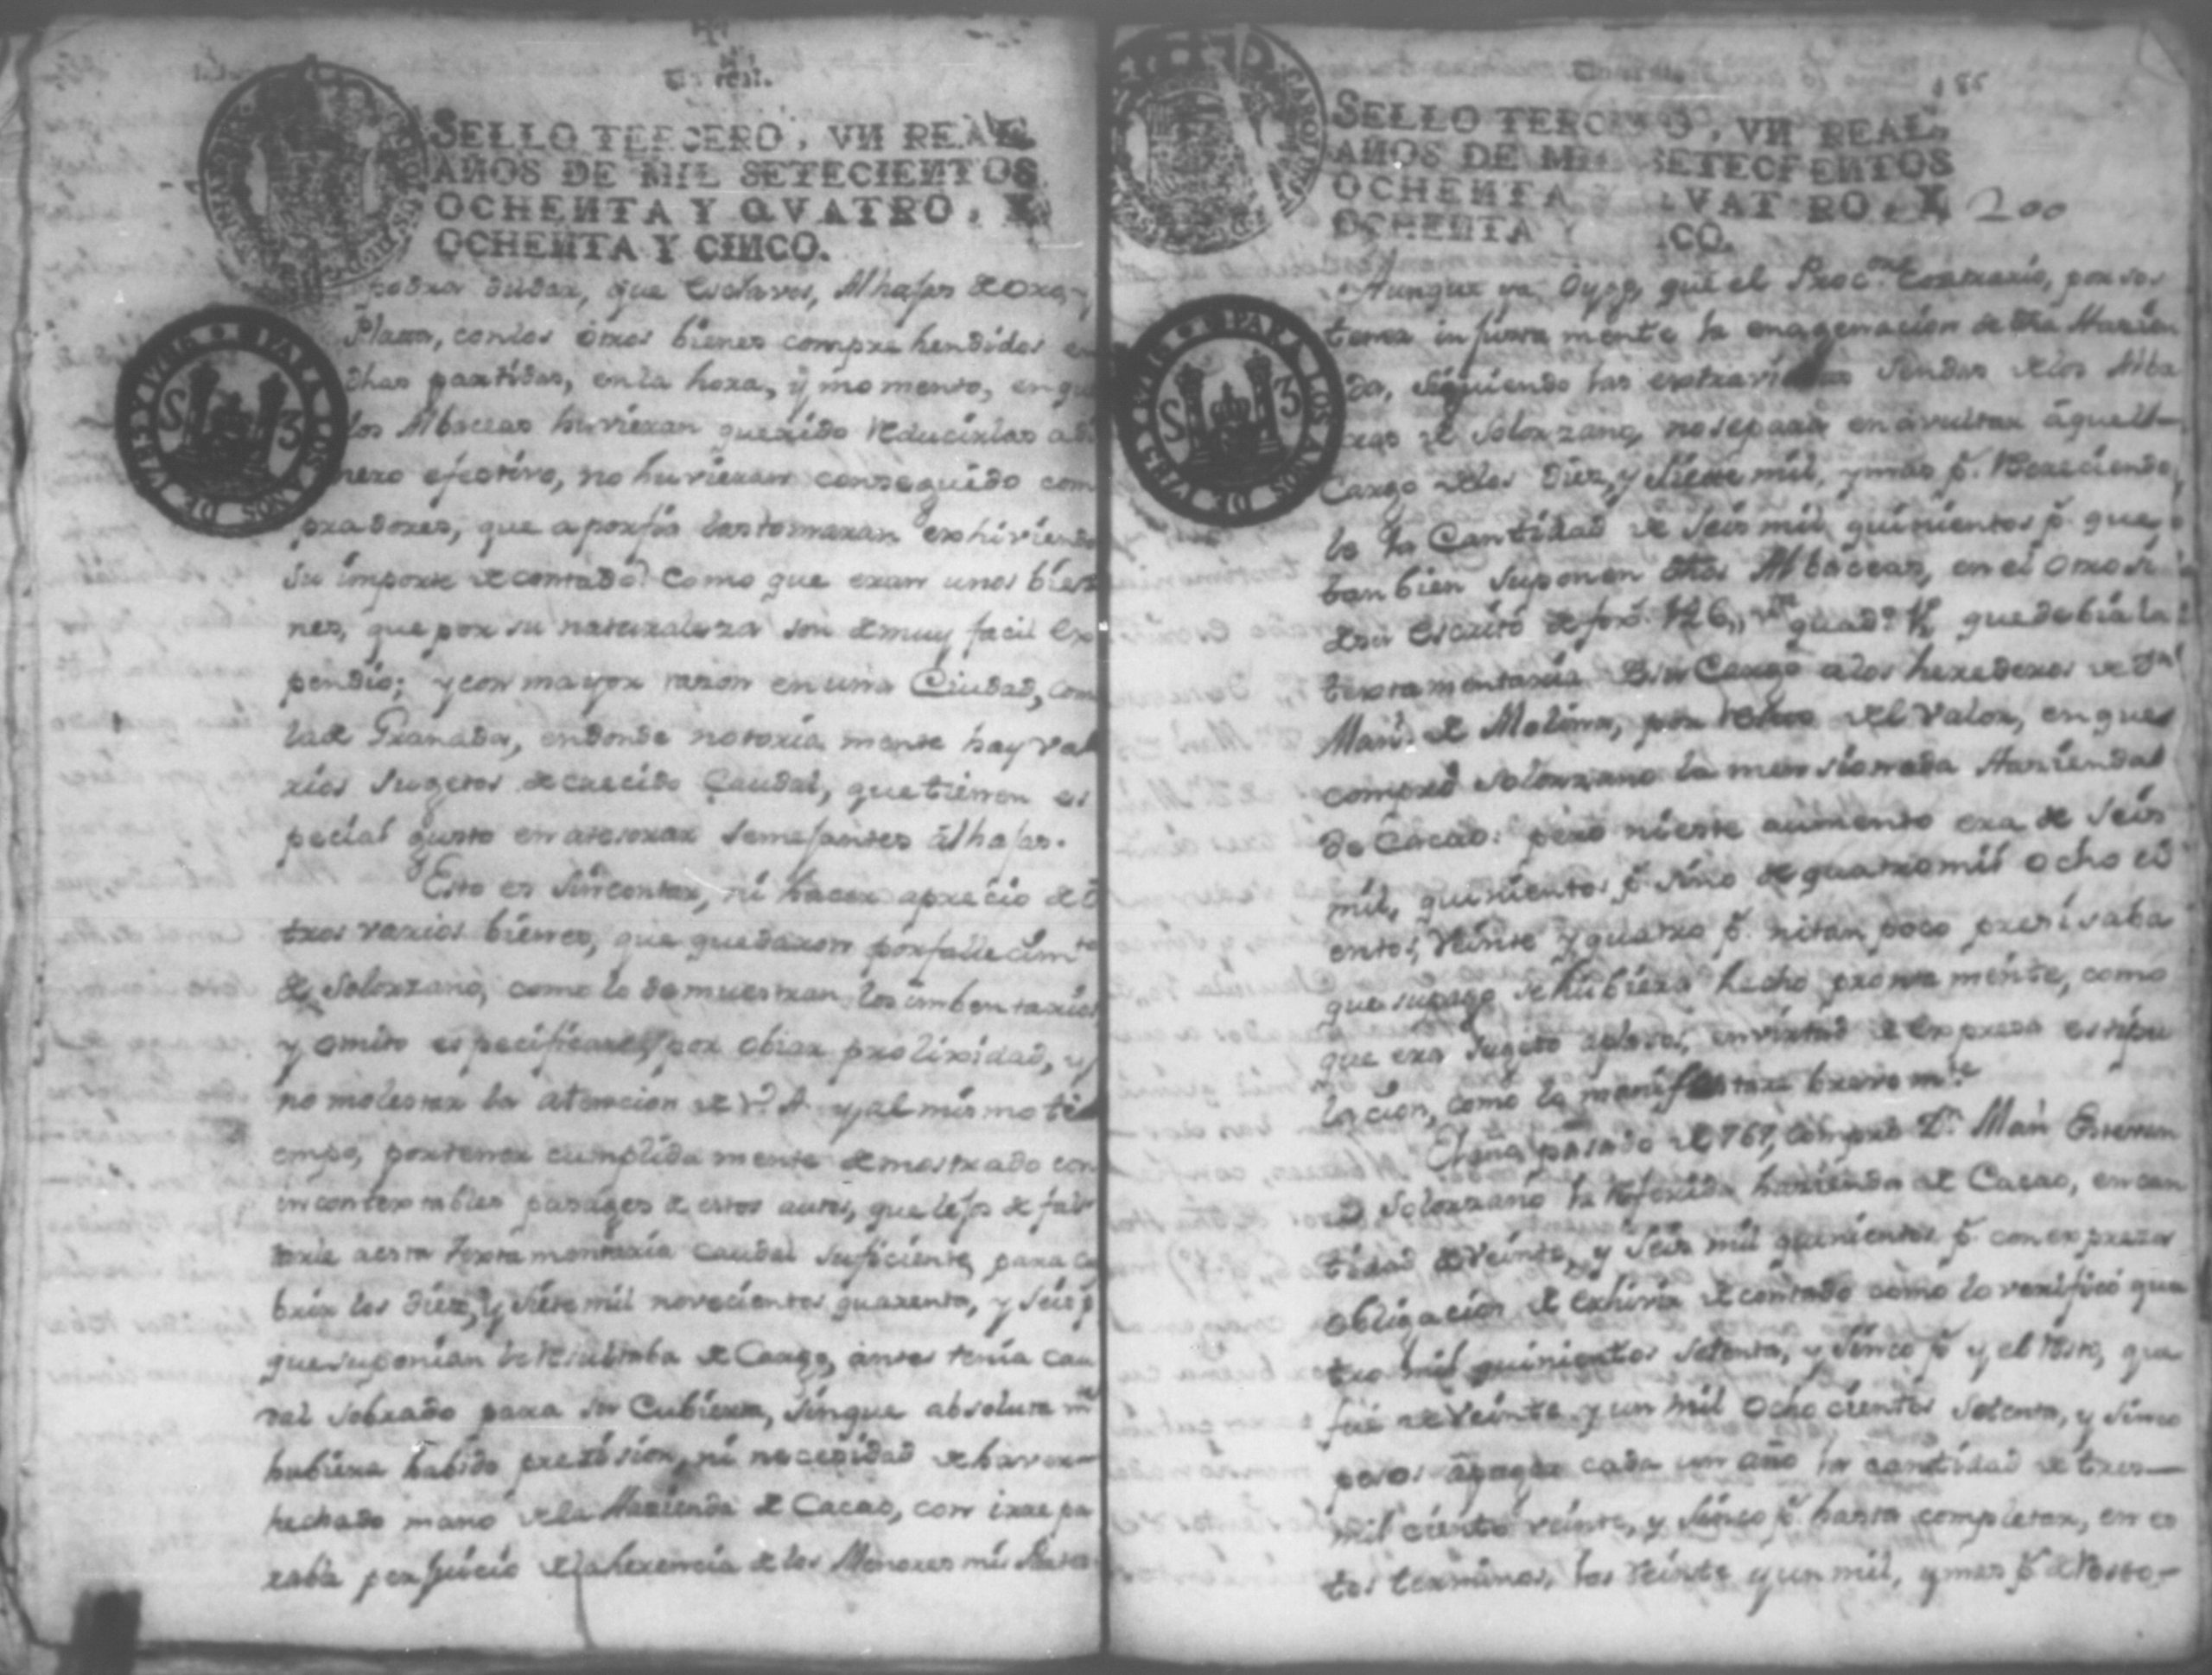 Un real.
SELLO TERCERO, VN REAL,
AÑOS DE MIL SETECIENTOS
OCHENTA Y QVATRO, Y
OCHENTA Y CINCO.
PARA LOS AÑOS DE
S 3
podra dudar, que Esclavos, Alhajas de Oro, y
Plata, con los otros bienes comprehendidos en
dhas partidas, en la hora, y momento, en que
los Albaceas huvieran querido reducirlas a di
nero efectivo, no huvieran conseguido com
pradores, que aporfia las tomaran exhiviendo
su importe de contado? Como que eran unos bie
nes, que por su naturaleza son de muy facil Ex
pendio; y con mayor razon en una Ciudad, como
la de Granada, en donde notoria mente hay va
rios Sugetos de crecido Caudal, que tienen es
pecial gusto en atesorar semejantes alhajas.
Esto es sin contar, ni hacer aprecio de o
tros varios bienes, que quedaron por fallecimto
de Solorzano, como lo demuestran los imbentarios
y omito especificarlos, por obiar prolixidad, y
no molestar la atencion de V. A. y al mismo ti
empo, por tener cumplida mente demostrado con
incontextables pasages de estos autos, que lejos de fal
tarle a esta Textamentaria Caudal suficiente, para cu
brir los diez, y siete mil novecientos quarenta, y seis p.
que suponian le resultaba de Cargo, antes tenia cau
dal sobrado para su Cubierta, sin que absoluta mte
hubiera habido precision, ni necesidad de haver
hechado mano de la Hazienda de Cacao, con irrepa
rable perjuicio de la herencia de los Menores mis Partes.
185
SELLO TERCERO, VN REAL,
AÑOS DE MIL SETECIENTOS
OCHENTA Y QVATRO, Y
OCHENTA Y CINCO.
200
PARA LOS AÑOS DE
S 3
Aunque ya Oygo, que el Procor Contrario, por sos
tener infirma mente la enagenacion de dha Hazien
da, siguiendo las extraviadas sendas de los Alba
ceas de Solorzano, no se para en avultar aquel
Cargo de los diez, y siete mil, y mas p.
le la Cantidad de seis mil quinientos p. que,
tanbien suponen dhos Albaceas, en el otro si
de su Escrito de fox. 126, quado que debia la
textamentaria a su Cargo a los herederos de Dn
Manl. de Molina, por resto del valor, en que
compró Solorzano la mensionada Hazienda
de Cacao: pero ni este aumento era de seis
mil, quinientos p. sino de quatro mil ocho ci
entos, veinte y quatro p. ni tan poco presisaba
que su pago se hubiera hecho pronta mente, como
que era sugeto aplasos, en virtud de Expresa estipu
lacion, como lo manifestare brevemte
El año pasado de 767, compró Dn Manl Estevan
de Solorzano la referida hazienda de Cacao, en can
tidad de veinte, y seis mil quinientos p. con expresa
obligacion de Exhivir de contado como lo verificó qua
tro mil quinientos setenta, y sinco p. y el resto, que
fué de veinte y un mil ocho cientos setenta, y sinco
pesos apagar cada un año la cantidad de tres
mil ciento veinte, y sinco p. hasta completar, en es
tos terminos, los veinte y un mil, y mas p. de resto